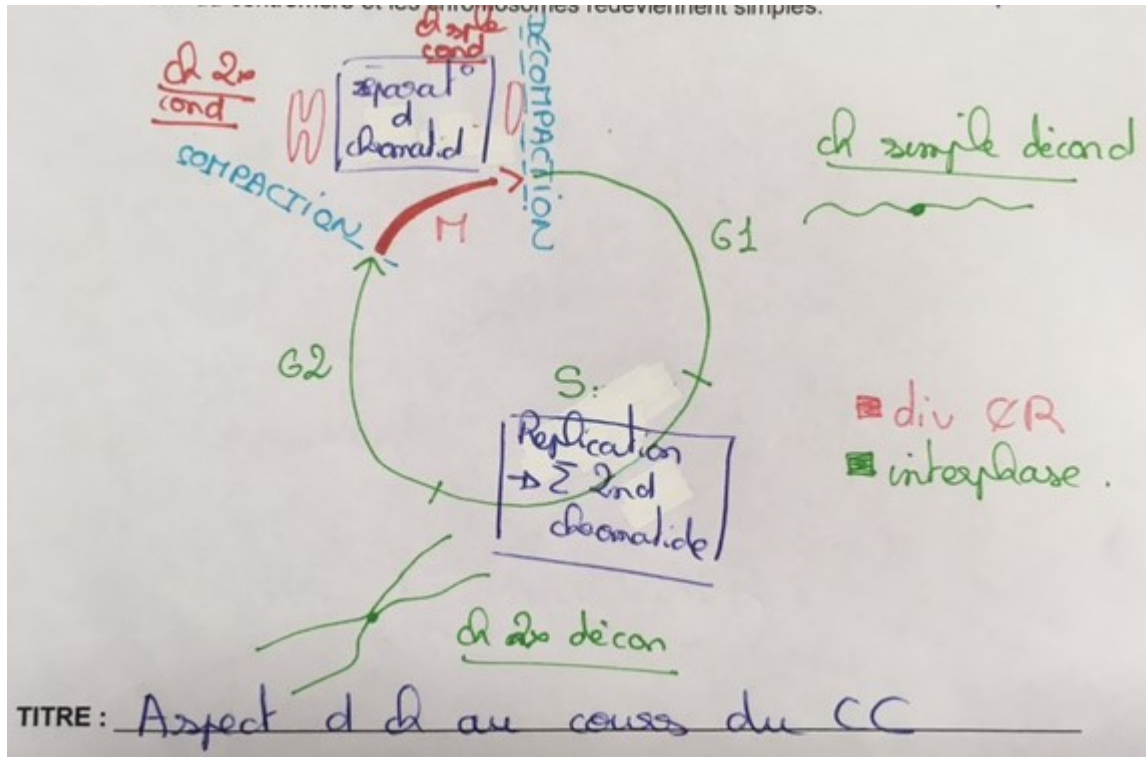 au centromère et les chromosomes redeviennent simples.
ch sple
cond
DÉCOMPACTION
ch 2x
cond
séparat°
d
chromatid
COMPACTION
M
ch simple décond
G1
G2
S:
Replication
→ Σ 2nd
chromatide
div ȻR
interphase.
ch 2x décon
TITRE : Aspect d ch au cours du CC